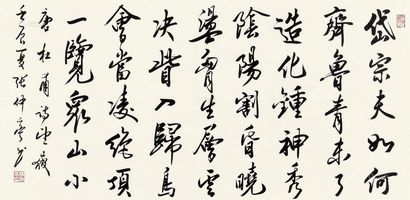 岱宗夫如何
齊魯青未了
造化鍾神秀
陰陽割昏曉
盪胷生層雲
决眥入歸鳥
會當凌絶頂
一覽衆山小
唐杜甫詩望嶽
壬辰夏張仲亭書